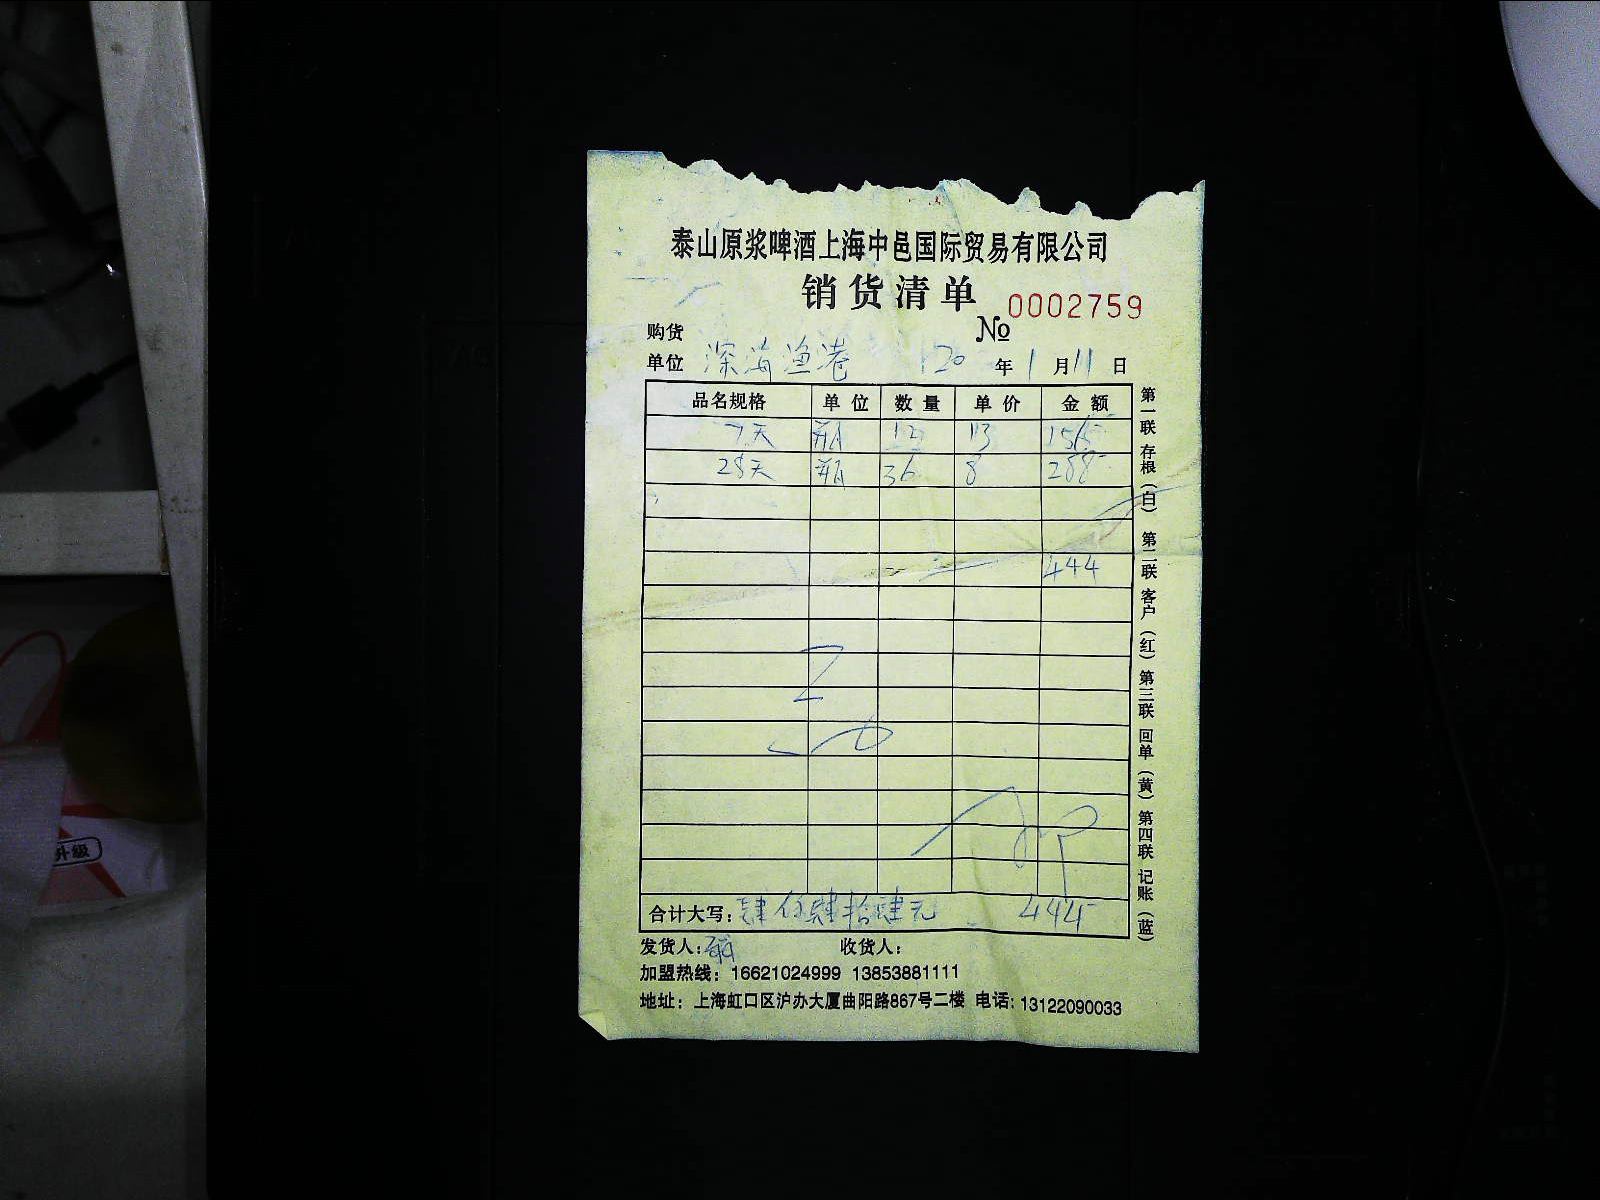 泰山原浆啤酒上海中邑国际贸易有限公司
销货清单
№ 0002759
购货
单位 深海渔港 20 年 1 月 11 日
品名规格 单位 数量 单价 金额
7天 瓶 12 13 156
28天 瓶 36 8 288
444
合计大写: 肆佰肆拾肆元 444
发货人: 收货人:
加盟热线: 16621024999 13853881111
地址: 上海虹口区沪办大厦曲阳路867号二楼 电话: 13122090033
第一联 存根(白) 第二联 客户(红) 第三联 回单(黄) 第四联 记账(蓝)
升級